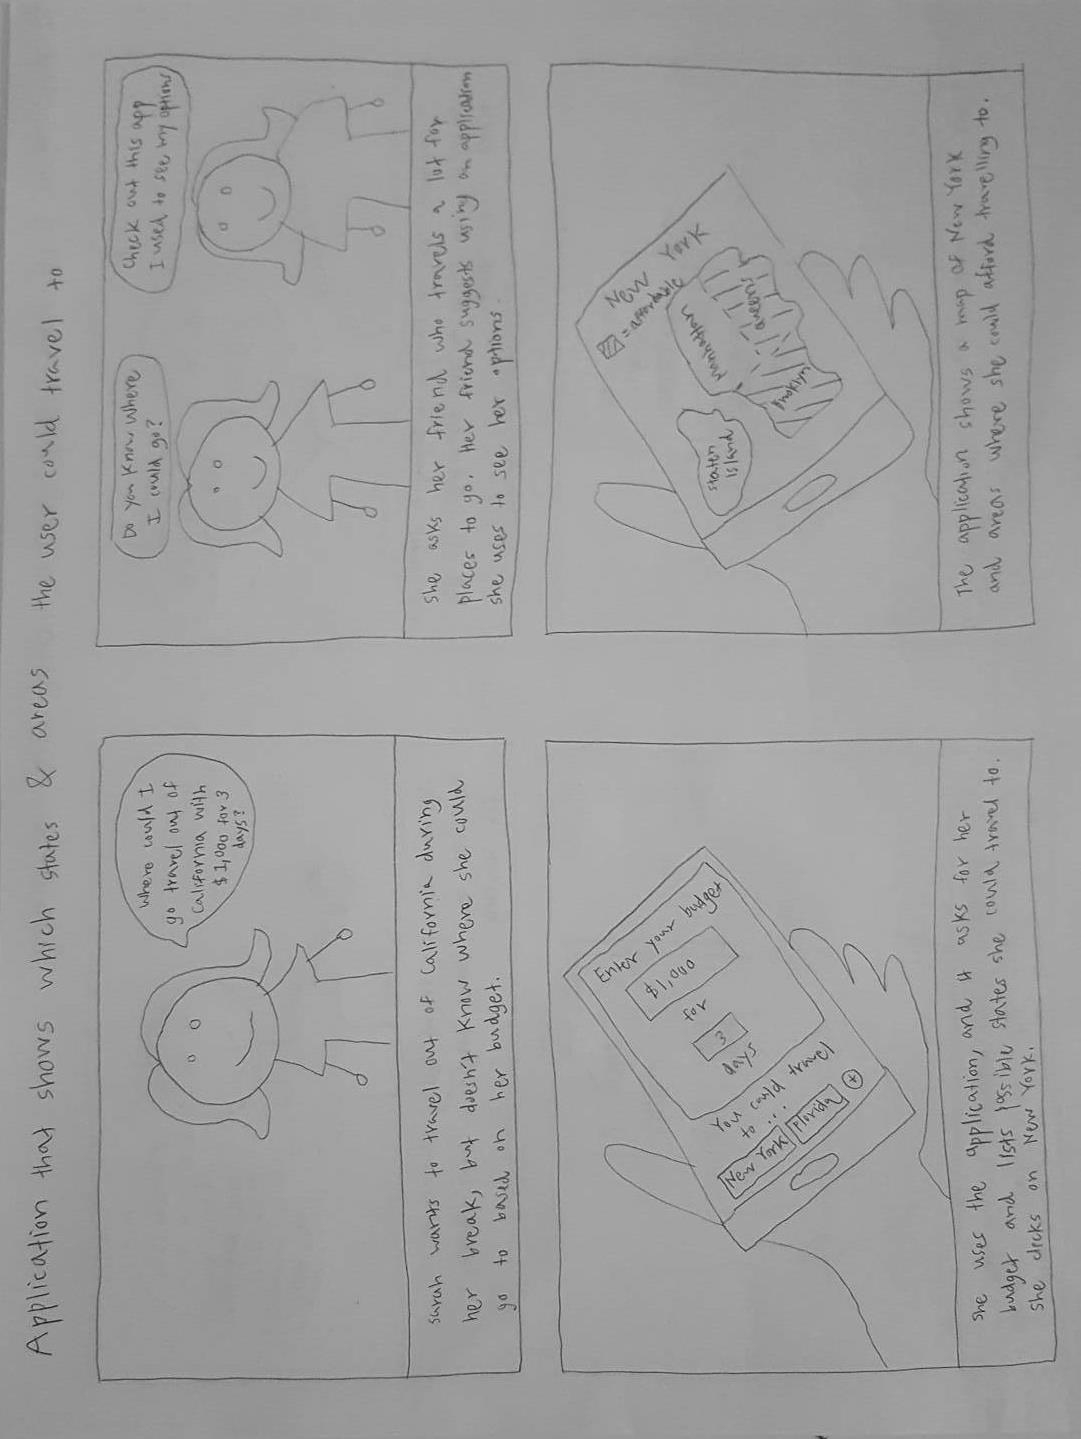 Application that shows which states & areas the user could travel to
Where could I
go travel out of
California with
$1,000 for 3
days?
Sarah wants to travel out of California during
her break, but doesn't know where she could
go to based on her budget.
Do you know where
I could go?
Check out this app
I used to see my options
She asks her friend who travels a lot for
places to go. Her friend suggests using an application
she uses to see her options.
Enter your budget
$1,000
for
3
days
You could travel
to...
New York
Florida
She uses the application, and it asks for her
budget and lists possible states she could travel to.
She clicks on New York.
New York
= affordable
Staten
island
Manhattan
Queens
Brooklyn
The application shows a map of New York
and areas where she could afford travelling to.